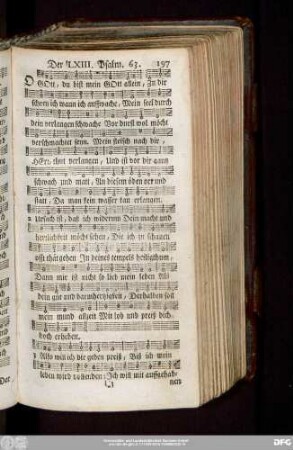 Der LXIII. Psalm. 63. 197
O GOtt, du bist mein GOtt allein, Zu dir
schrey ich wann ich auffwache, Mein seel durch
dein verlangen schwache Vor durst wol möcht
verschmachtet seyn. Mein fleisch nach dir,
HErr, thut verlangen, Und ist vor dir gantz
schwach und matt, An diesem öden ort und
statt, Da man kein wasser kan erlangen.
2 Ursach ist, daß ich widerum Dein macht und
herrlichkeit möcht sehen, Die ich
offt thät gehen In deines tempels heiligthum,
Dann mir ist nicht so lieb mein leben Als
dein güt und barmhertzigkeit, Derhalben soll
mein mund allzeit Mit lob und preiß dich
hoch erheben.
3 Also will ich dir geben preiß, Biß ich mein
leben wird vollenden: Ich will mit auffgehab-
nen
Der